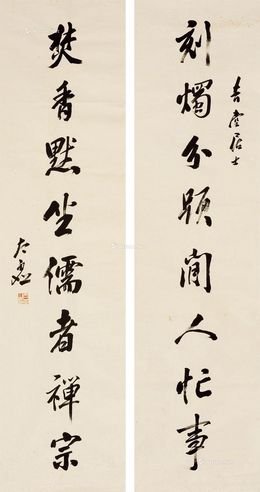 吉雲居士
刻燭分題閒人忙事
焚香默坐儒者禪宗
太虛